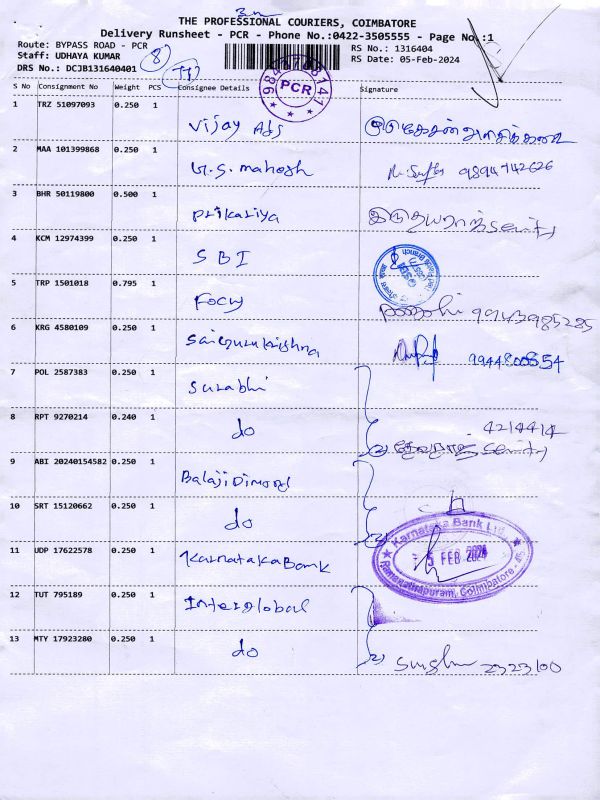 THE PROFESSIONAL COURIERS, COIMBATORE
Delivery Runsheet - PCR - Phone No.:0422-3505555 - Page No.:1
Route: BYPASS ROAD - PCR
Staff: UDHAYA KUMAR
DRS No.: DCJB131640401
RS No.: 1316404
RS Date: 05-Feb-2024
PCR
S No Consignment No Weight PCS Consignee Details Signature
1 TRZ 51097093 0.250 1 Vijay Ads
2 MAA 101399868 0.250 1 M.S. mahesh 9894742626
3 BHR 50119800 0.500 1 Prikariya
4 KCM 12974399 0.250 1 SBI
5 TRP 1501018 0.795 1 Focuy
6 KRG 4580109 0.250 1 Saigurukrishna 9944800854
7 POL 2587383 0.250 1 Surabhi
8 RPT 9270214 0.240 1 do 4214414
9 ABI 20240154582 0.250 1 Balaji Dimond
10 SRT 15120662 0.250 1 do
11 UDP 17622578 0.250 1 Karnataka Bank
Karnataka Bank Ltd.
5 FEB 2024
Ramanathapuram, Coimbatore
12 TUT 795189 0.250 1 Interglobal
13 MTY 17923280 0.250 1 do 2323100